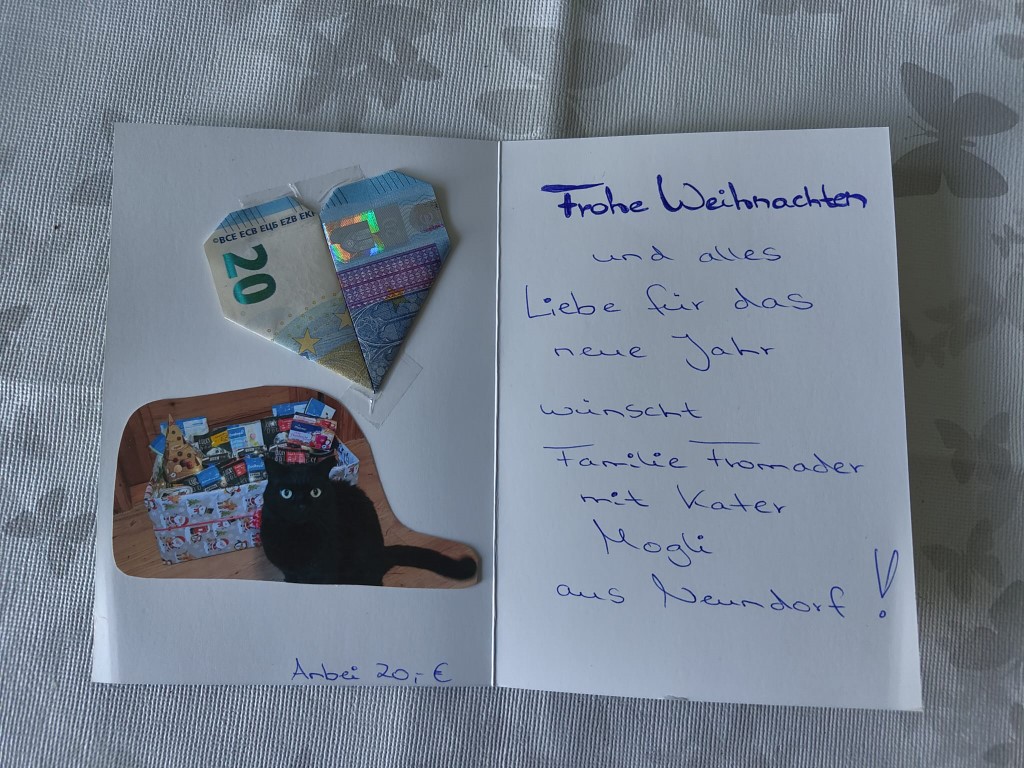 ©BCE ECB ЕЦБ EZB EK
20
Anbei 20,- €
Frohe Weihnachten
und alles
Liebe für das
neue Jahr
wünscht
Familie Fromader
mit Kater
Mogli
aus Neundorf!